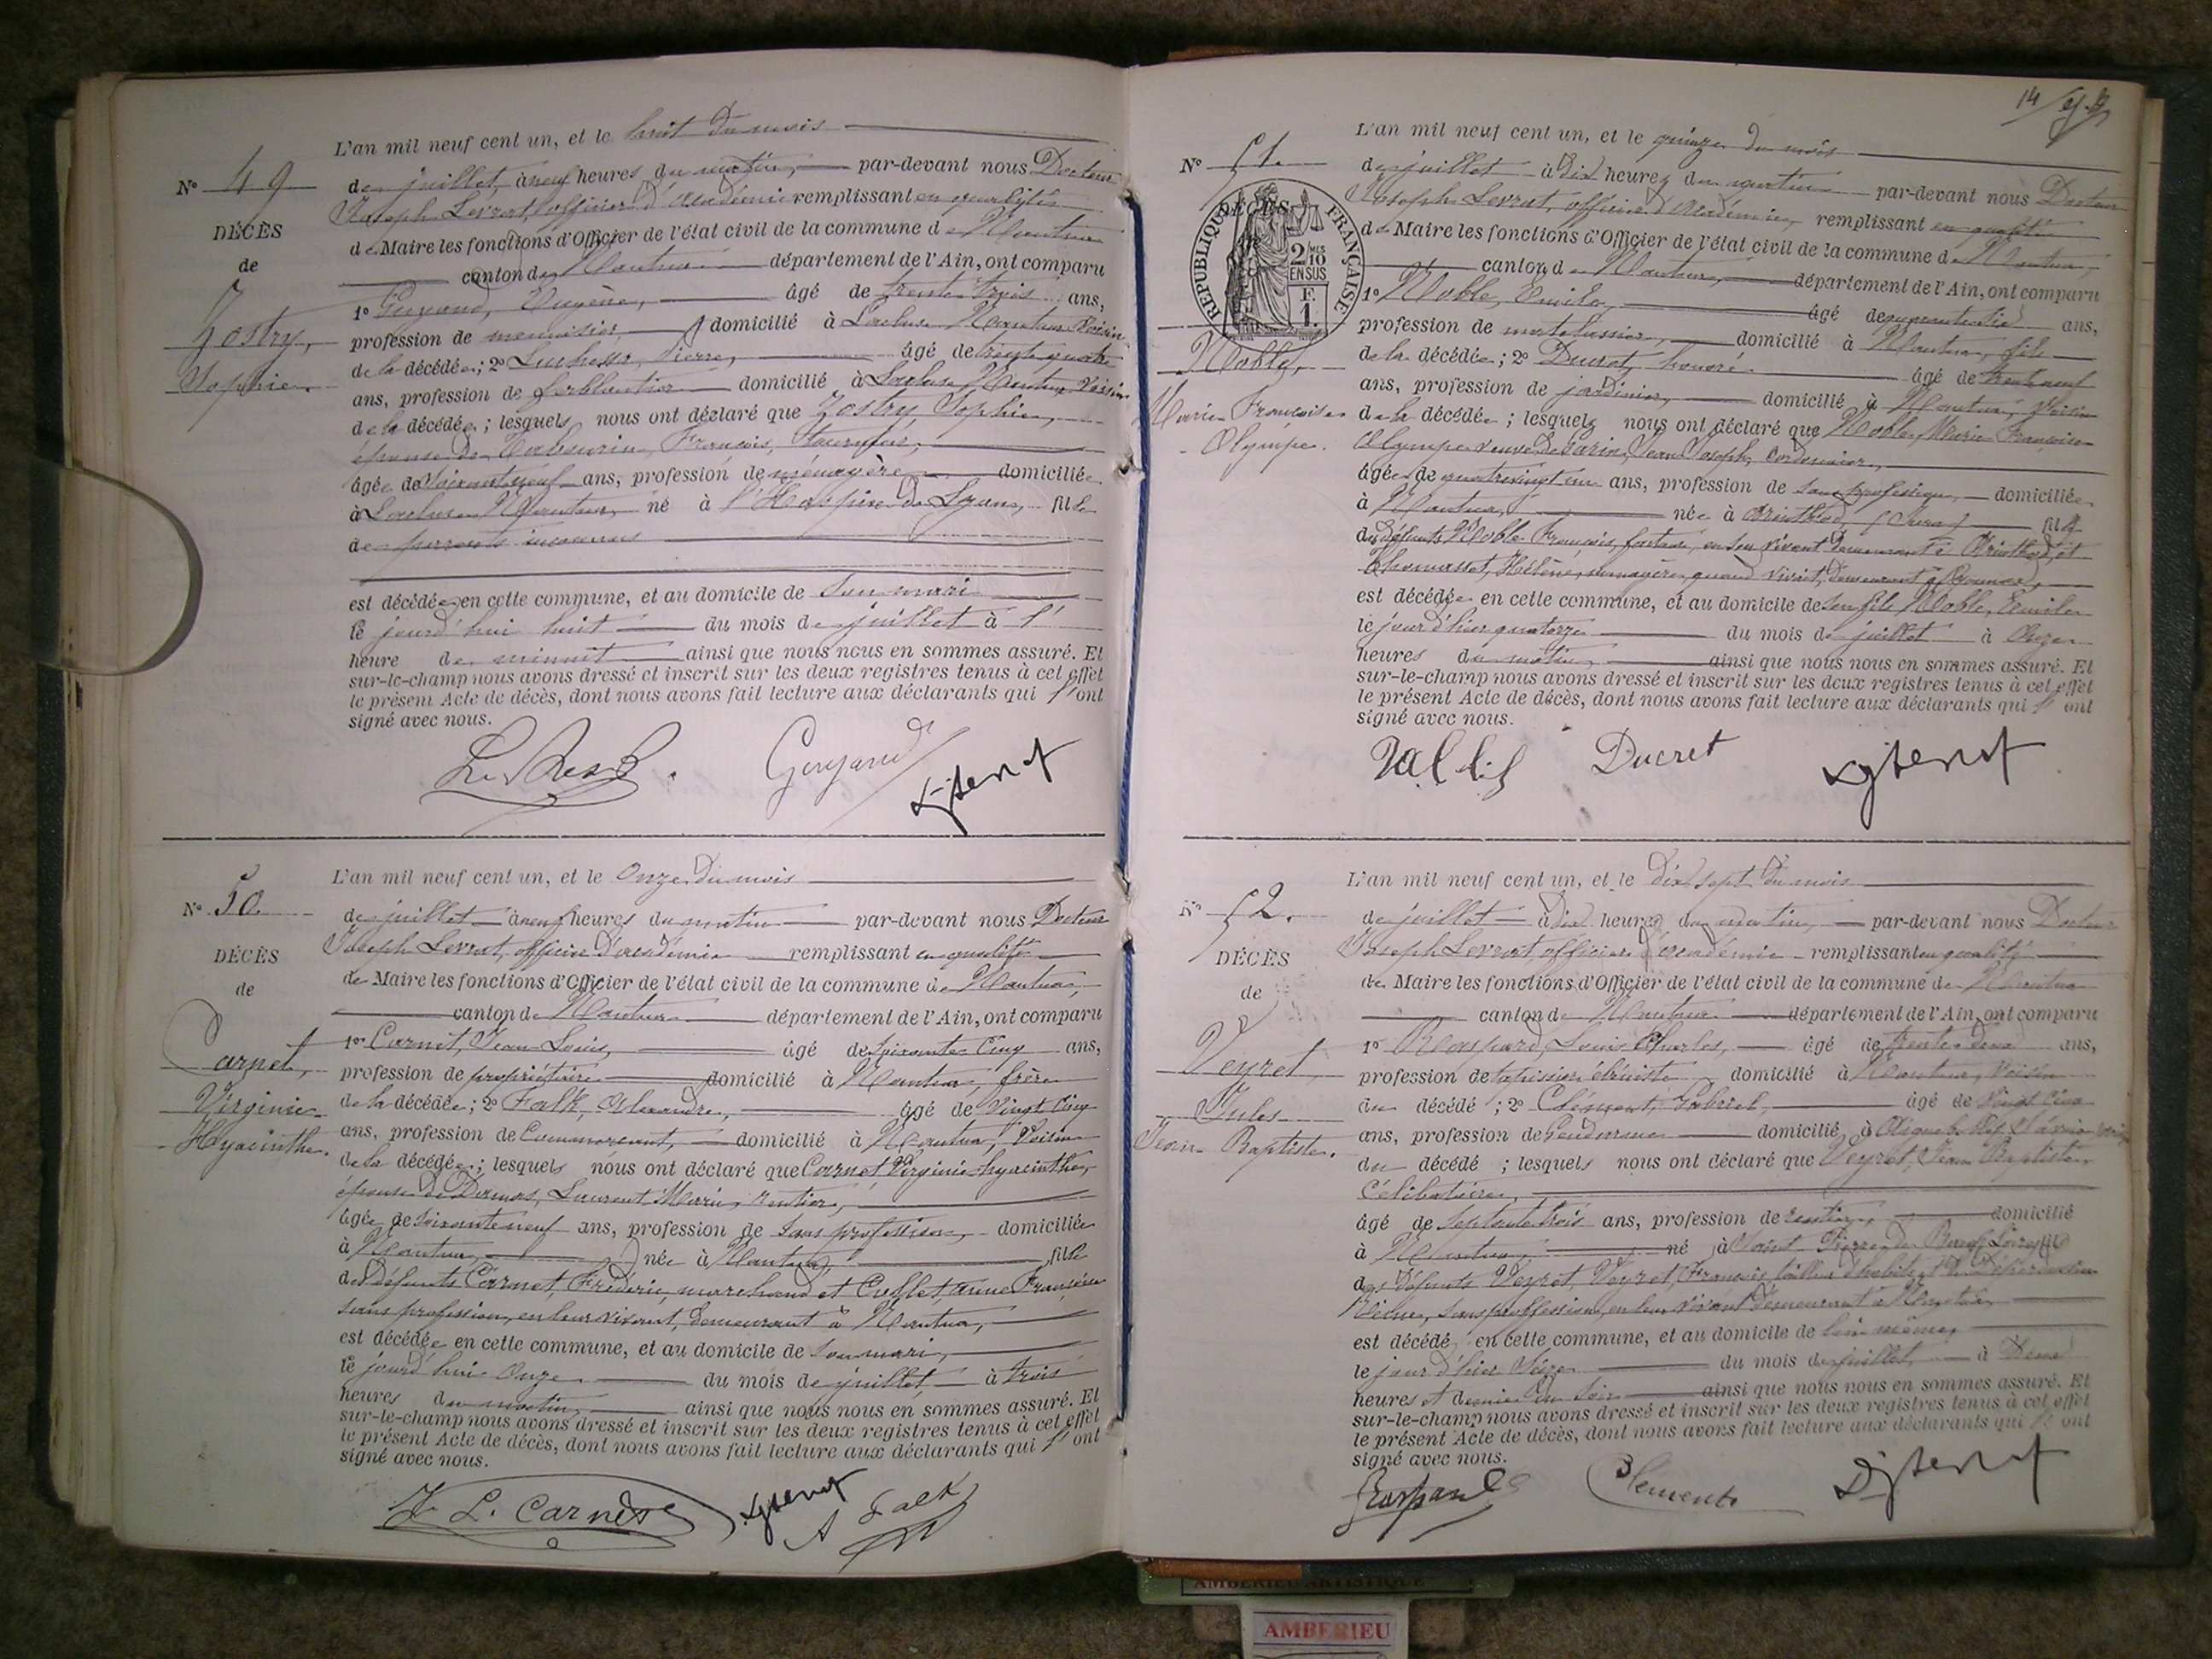 L'an mil neuf cent un, et le huit du mois
N° 49
de juillet, à neuf heures du matin, par-devant nous Docteur
Joseph Levrat, officier d'académie remplissant en qualité
DÉCÈS
de Maire les fonctions d'Officier de l'état civil de la commune de Nantua
de
canton de Nantua département de l'Ain, ont comparu
1° Guyand, Eugène, âgé de trente trois ans,
Zostry,
profession de menuisier, domicilié à Lacluse Nantua Voisin
Sophie.
de la décédée; 2° Pierre, âgé de trente quatre
ans, profession de ferblantier domicilié à Lacluse Nantua, Voisin
de la décédée; lesquels nous ont déclaré que Zostry, Sophie,
épouse de François,
âgée de Soixante neuf ans, profession de ménagère domiciliée
à Lacluse Nantua, né à l'Hospice de Lyon, fille
de parents inconnus
est décédée en cette commune, et au domicile de Son mari
le jourd'hui huit du mois de juillet à 1
heure de minuit ainsi que nous nous en sommes assuré. Et
sur-le-champ nous avons dressé et inscrit sur les deux registres tenus à cet effet
le présent Acte de décès, dont nous avons fait lecture aux déclarants qui l'ont
signé avec nous.
Guyand
L'an mil neuf cent un, et le Onze du mois
N° 50.
de juillet à neuf heures du matin par-devant nous Docteur
Joseph Levrat, officier d'académie remplissant en qualité
DÉCÈS
de Maire les fonctions d'Officier de l'état civil de la commune de Nantua,
de
canton de Nantua département de l'Ain, ont comparu
1° Carnet, Jean Louis, âgé de Soixante Cinq ans,
Carnet,
profession de propriétaire domicilié à Nantua, frère
Virginie
de la décédée; 2° Falk, Alexandre, âgé de Vingt Cinq
Hyacinthe.
ans, profession de Commerçant, domicilié à Nantua, Voisin
de la décédée; lesquels nous ont déclaré que Carnet, Virginie hyacinthe,
épouse de Dumas, Laurent Marie, rentier,
âgée de Soixante neuf ans, profession de Sans profession, domiciliée
à Nantua, née à Nantua, fille
des défunts Carnet, Frédéric, marchand et Cullet, Anne Françoise
sans profession, en leur vivant, demeurant à Nantua,
est décédée en cette commune, et au domicile de Son mari,
le jourd'hui Onze du mois de juillet, à trois
heures du matin, ainsi que nous nous en sommes assuré. Et
sur-le-champ nous avons dressé et inscrit sur les deux registres tenus à cet effet
le présent Acte de décès, dont nous avons fait lecture aux déclarants qui l'ont
signé avec nous.
J. L. Carnet
A Falk
14
L'an mil neuf cent un, et le quinze du mois
N° 51.
de juillet à Dix heures du matin par-devant nous Docteur
Joseph Levrat, officier d'Académie, remplissant en qualité
DÉCÈS
RÉPUBLIQUE FRANÇAISE
2/10 EN SUS
F. 1.
de Maire les fonctions d'Officier de l'état civil de la commune de Nantua,
canton de Nantua, département de l'Ain, ont comparu
1° Noble, Emile, âgé de ans,
profession de matelassier, domicilié à Nantua, fils
Noble,
de la décédée; 2° Ducret, honoré âgé de trente neuf
ans, profession de jardinier, domicilié à Nantua, Voisin
Marie Françoise
de la décédée; lesquels nous ont déclaré que Noble, Marie Françoise
Olympe.
Olympe veuve de Jean Joseph, Cordonnier,
âgée de quatre vingt un ans, profession de Sans profession, domiciliée
à Nantua, née à (Jura) fille
des défunts Noble François, facteur, en son vivant demeurant à et
Thomasset, Hélène, ménagère, quand vivait, demeurant à
est décédée en cette commune, et au domicile de Son fils Noble, Emile
le jour d'hier quatorze du mois de juillet à Onze
heures du matin, ainsi que nous nous en sommes assuré. Et
sur-le-champ nous avons dressé et inscrit sur les deux registres tenus à cet effet
le présent Acte de décès, dont nous avons fait lecture aux déclarants qui l'ont
signé avec nous.
Ducret
L'an mil neuf cent un, et le dix sept du mois
N° 52.
de juillet à dix heures du matin, par-devant nous Docteur
Joseph Levrat officier d'académie remplissant en qualité
DÉCÈS
de Maire les fonctions d'Officier de l'état civil de la commune de Nantua
de
canton de Nantua département de l'Ain, ont comparu
1° Raspard, Louis Charles, âgé de trente deux ans,
Veyret,
profession de tapissier ébéniste domicilié à Nantua, Voisin
Jules
du décédé; 2° Clément, Gabriel, âgé de Vingt Cinq
Jean Baptiste.
ans, profession de Gendarme domicilié à
du décédé; lesquels nous ont déclaré que Veyret, Jean Baptiste
Célibataire,
âgé de Septante trois ans, profession de rentier, domicilié
à Nantua, né à Saint Pierre de Boeuf, Loire, fils
des défunts Veyret, Veyret, François tailleur d'habits et
sans profession, en leur vivant demeurant à Nantua
est décédé en cette commune, et au domicile de lui même,
le jour d'hier Seize du mois de juillet, à Deux
heures et demie du Soir ainsi que nous nous en sommes assuré. Et
sur-le-champ nous avons dressé et inscrit sur les deux registres tenus à cet effet
le présent Acte de décès, dont nous avons fait lecture aux déclarants qui l'ont
signé avec nous.
Clément
AMBERIEU ARTISTIQUE
AMBERIEU